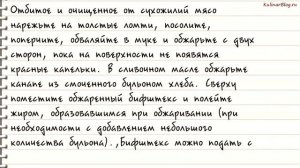 KulinarBlog.ru
Отбитое и очищенное от сухожилий мясо
нарежьте на толстые ломти, посолите,
поперчите, обваляйте в муке и обжарьте с двух
сторон, пока на поверхности не появятся
красные капельки. В сливочном масле обжарьте
канапе из смоченного бульоном хлеба. Сверху
поместите обжаренный бифштекс и полейте
жиром, образовавшимся при обжаривании (при
необходимости с добавлением небольшого
количества бульона).,Бифштекс можно подать с